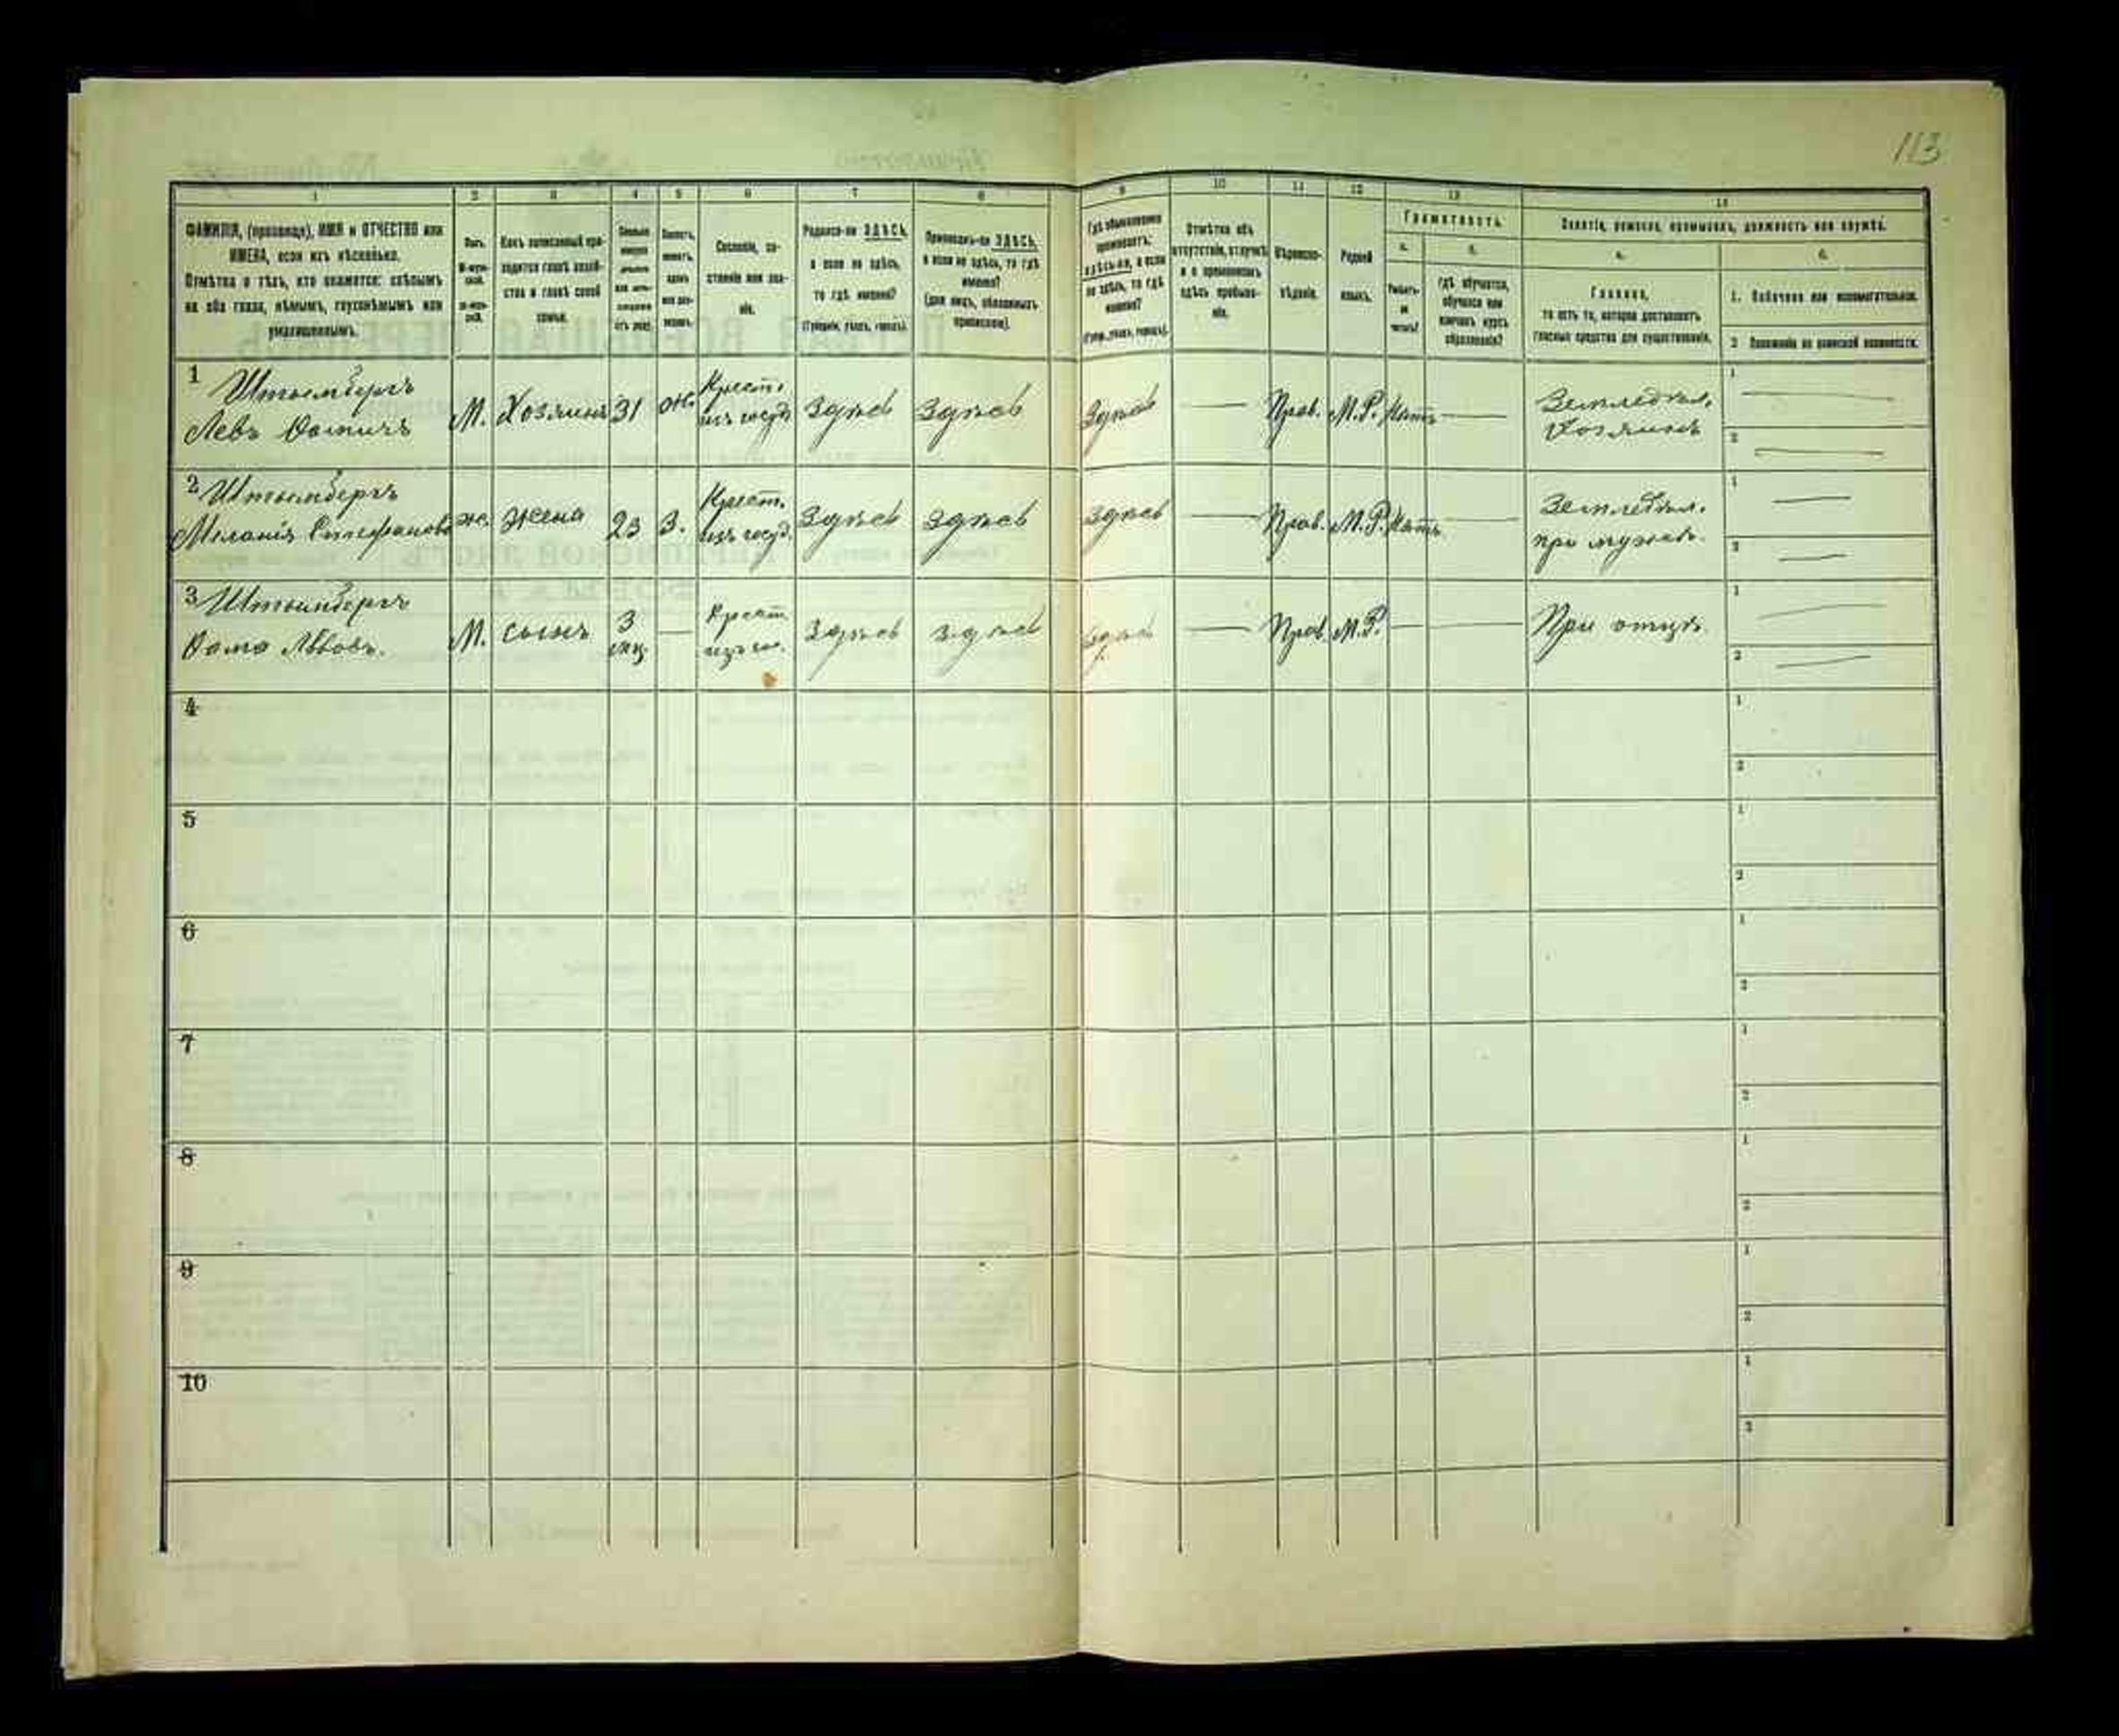 113
1 2 3 4 5 6 7 8 9 10 11 12 13 14
ФАМИЛІЯ, (прозвище), ИМЯ и ОТЧЕСТВО или
ИМЕНА, если ихъ нѣсколько.
Отмѣтка о тѣхъ, кто окажется: слѣпымъ
на оба глаза, нѣмымъ, глухонѣмымъ или
умалишеннымъ.
Полъ.
М-муж-
ской.
Ж-жен-
скій.
Какъ записанный при-
ходится главѣ хозяй-
ства и главѣ своей
семьи.
Сколько
отъ роду.
Холостъ,
женатъ,
вдовъ
или раз-
веденъ.
Сословіе, со-
стояніе или зва-
ніе.
Родился-ли ЗДѢСЬ,
а если не здѣсь,
то гдѣ именно?
(Губернія, уѣздъ, городъ).
Приписанъ-ли ЗДѢСЬ,
а если не здѣсь, то гдѣ
именно?
(для лицъ, обязанныхъ
припискою).
Гдѣ обыкновенно
проживаетъ:
здѣсь-ли, а если
не здѣсь, то гдѣ
именно?
(Губер., уѣздъ, городъ).
Отмѣтка объ
отсутствіи, отлучкѣ
и о временномъ
здѣсь пребыва-
ніи.
Вѣроиспо-
вѣданіе.
Родной
языкъ.
Грамотность.
а. б.
Умѣетъ-
ли
читать?
гдѣ обучается,
обучался или
кончилъ курсъ
образованія?
Занятіе, ремесло, промыселъ, должность или служба.
а. б.
Главное,
то есть то, которое доставляетъ
главныя средства для существованія.
1. Побочное или вспомогательное.
2 Положеніе по воинской повинности.
1 Левъ М. Хозяинъ 31 ж. Крест. изъ госуд. Здѣсь Здѣсь Здѣсь — Прав. М.Р. — Земледѣл. Хозяинъ 1 — 2 —
2 Меланія ж. жена 23 З. Крест. изъ госуд. Здѣсь Здѣсь Здѣсь — Прав. М.Р. — Земледѣл. при мужѣ. 1 — 2 —
3 М. сынъ 3 мц. — Крест. Здѣсь Здѣсь Здѣсь — Прав. М.Р. — — При отцѣ. 1 — 2 —
4 1
2
5 1
2
6 1
2
7 1
2
8 1
2
9 1
2
10 1
2